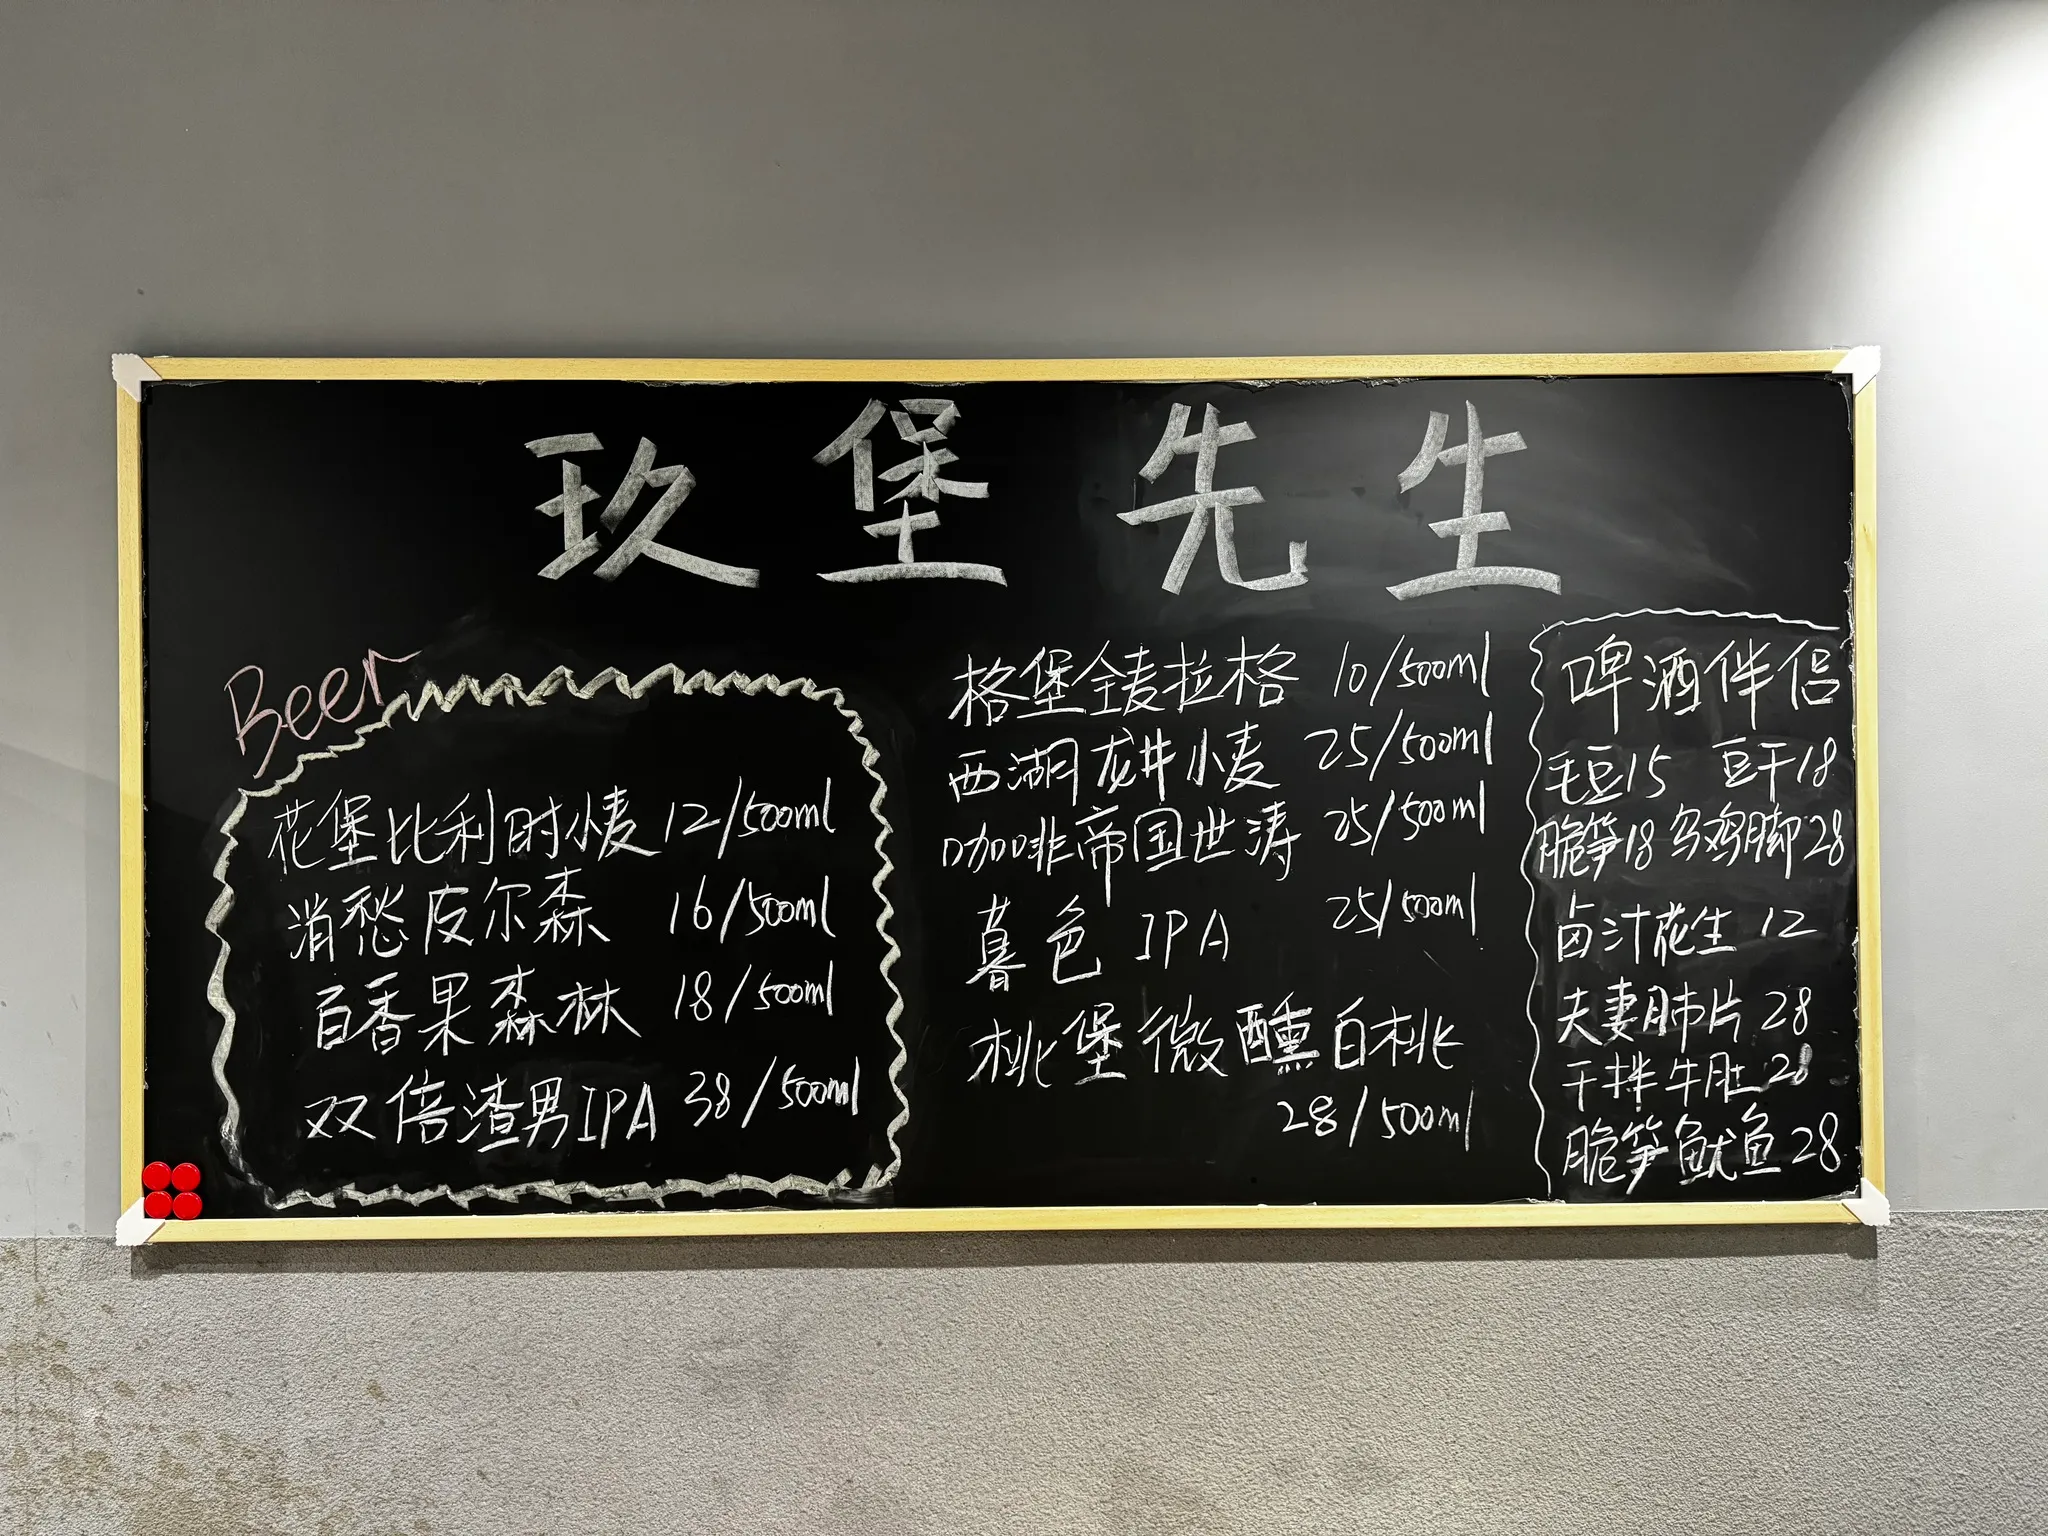 玖堡先生
Beer
花堡比利时小麦 12/500ml
消愁皮尔森 16/500ml
百香果森林 18/500ml
双倍渣男IPA 38/500ml
格堡全麦拉格 10/500ml
西湖龙井小麦 25/500ml
咖啡帝国世涛 25/500ml
暮色 IPA 25/500ml
桃堡微醺白桃
28/500ml
啤酒伴侣
毛豆15 豆干18
脆笋18 乌鸡脚28
卤汁花生 12
夫妻肺片 28
干拌牛肚28
脆笋鱿鱼28